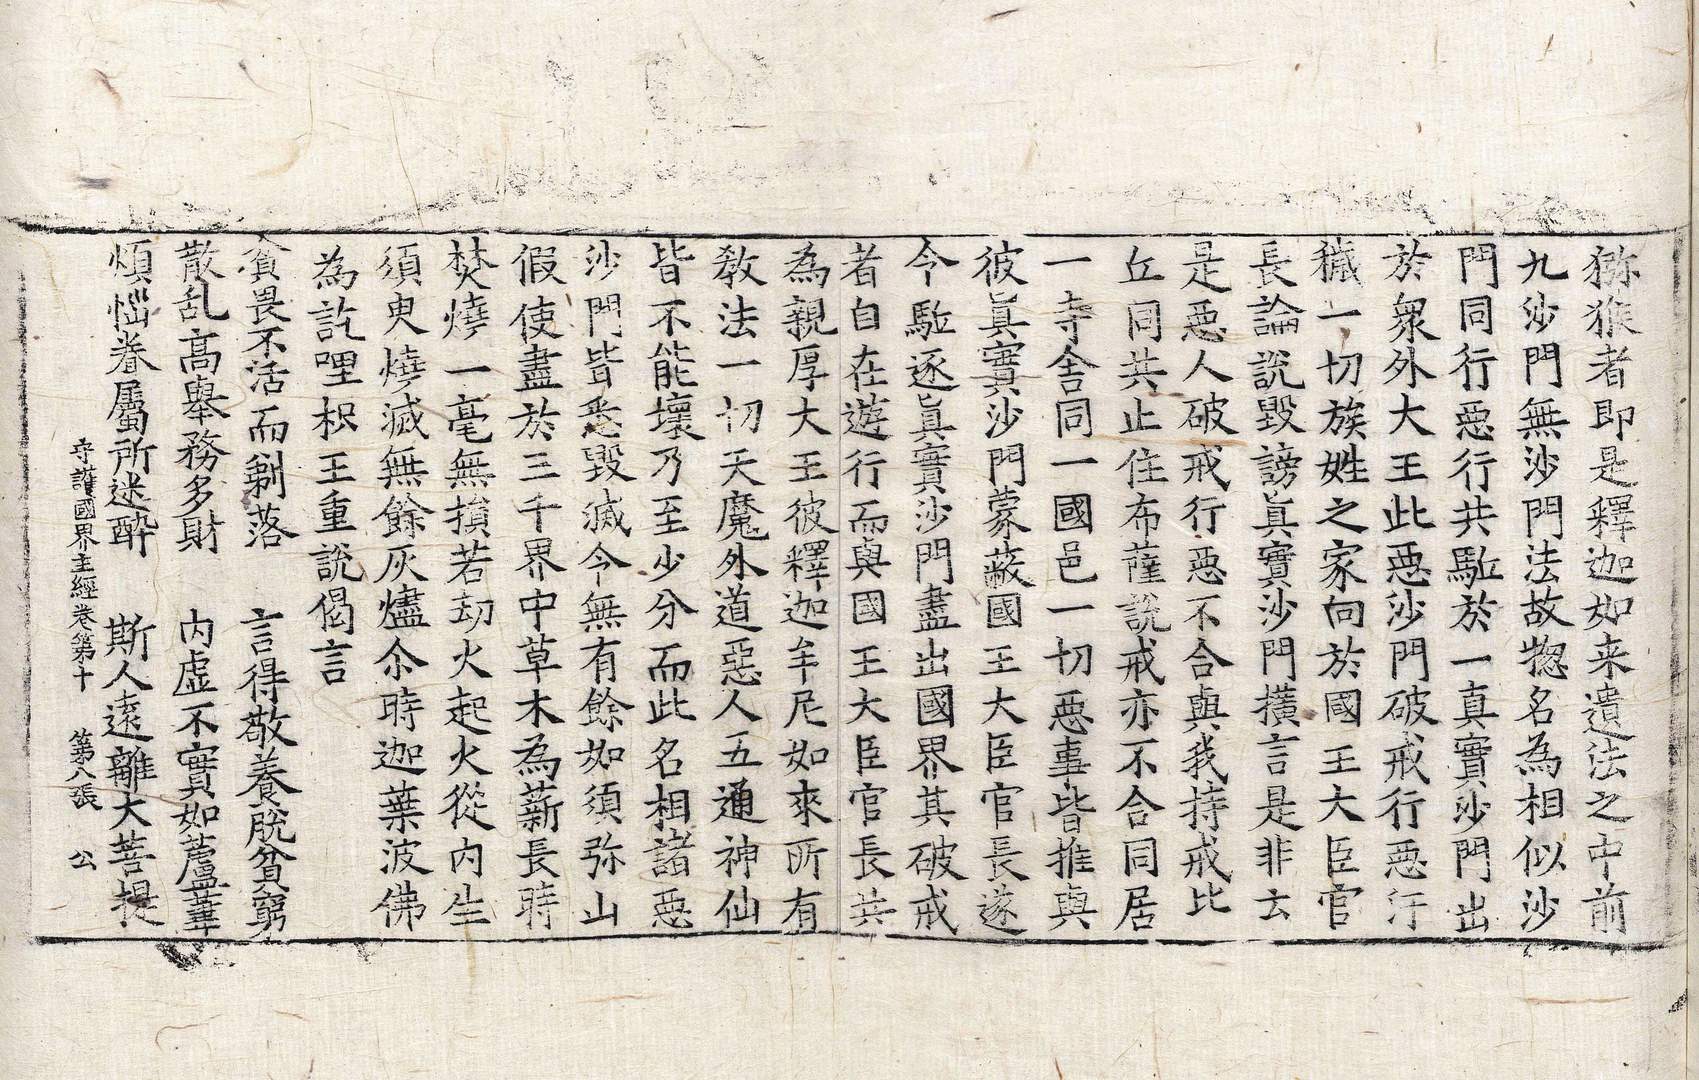 猕猴者即是釋迦如来遺法之中前
九沙門無沙門法故惣名為相似沙
門同行惡行共駈於一真實沙門出
於衆外大王此惡沙門破戒行惡汙
穢一切族姓之家向於國王大臣官
長論說毀謗真實沙門横言是非云
是惡人破戒行惡不合與我持戒比
丘同共止住布薩說戒亦不合同居
一寺舍同一國邑一切惡事皆推與
彼真實沙門蒙蔽國王大臣官長遂
令駈逐真實沙門盡出國界其破戒
者自在遊行而與國王大臣官長共
為親厚大王彼釋迦牟尼如來所有
教法一切天魔外道惡人五通神仙
皆不能壞乃至少分而此名相諸惡
沙門皆悉毀滅令無有餘如須弥山
假使盡於三千界中草木為薪長時
焚燒一毫無損若劫火起火從內生
須臾燒滅無餘灰燼尒時迦葉波佛
為訖哩枳王重說偈言
貧畏不活而剃落　言得敬養脫貧窮
散乱高舉務多財　内虚不實如蘆葦
煩惱眷屬所迷醉　斯人遠離大菩提
守護國界主經卷第十　第八張　公